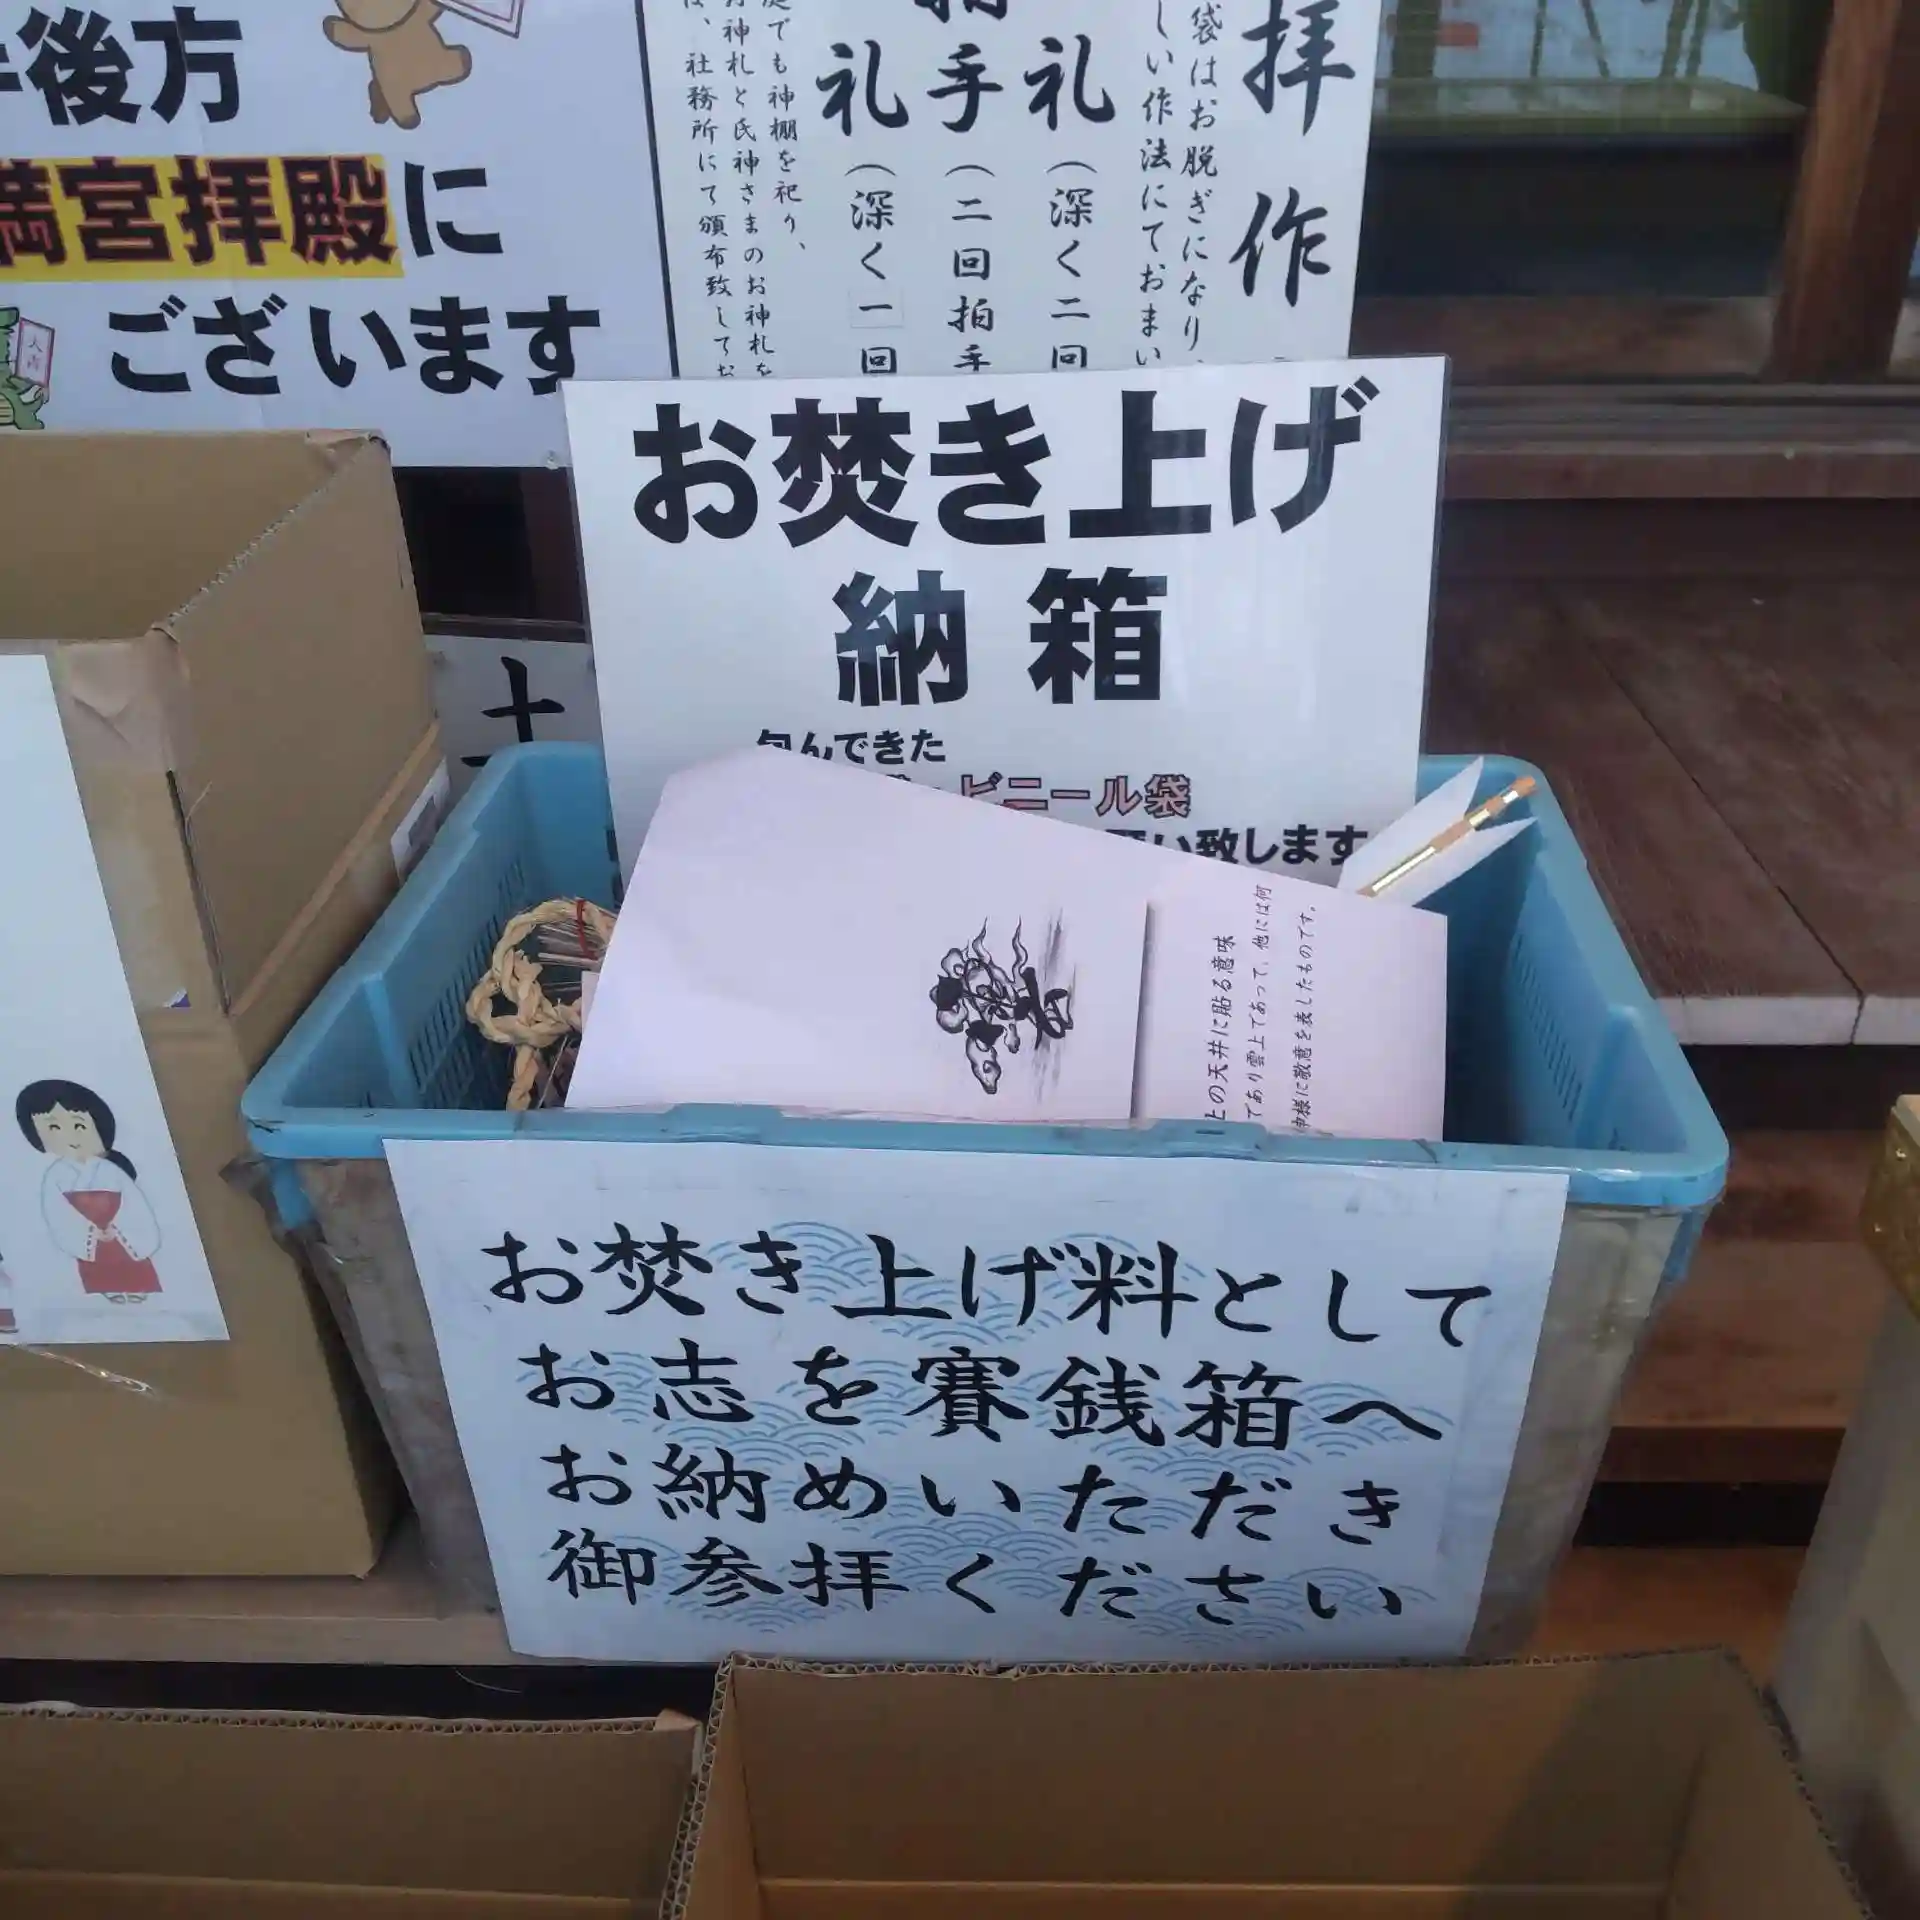 後方
満宮拝殿に
ございます
拝 作
袋はお脱ぎになり、
しい作法にておまい
礼(深く二回
拍手(二回拍手
礼(深く一回
でも神棚を祀り、
神札と氏神さまのお神札を
、社務所にて頒布致してお
お焚き上げ
納箱
包んできた
ビニール袋
い致します
上の天井に貼る意味
であり雲上であって、他には何
神様に敬意を表したものです。
お焚き上げ料として
お志を賽銭箱へ
お納めいただき
御参拝ください